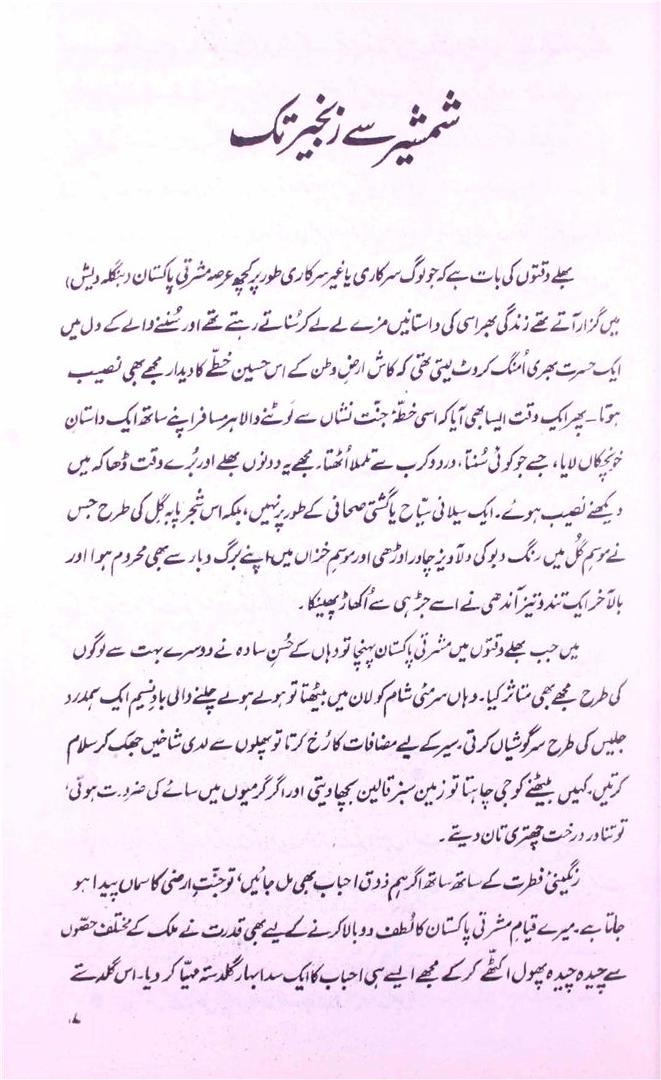 شمشیر سے زنجیر تک
بھلے وقتوں کی بات ہے کہ جو لوگ سرکاری یا غیر سرکاری طور پر کچھ عرصہ مشرقی پاکستان (بنگلہ دیش)
میں گزار آتے تھے زندگی بھر اسی کی داستانیں مزے لے لے کر سُناتے رہتے تھے اور سُننے والے کے دل میں
ایک حسرت بھری اُمنگ کروٹ لیتی تھی کہ کاش ارضِ وطن کے اس حسین خطّے کا دیدار مجھے بھی نصیب
ہوتا۔ پھر ایک وقت ایسا بھی آیا کہ اسی خطۂ جنت نشاں سے لَوٹنے والا ہر مسافر اپنے ساتھ ایک داستانِ
خونچکاں لایا، جسے جو کوئی سُنتا، درد و کرب سے تلملا اُٹھتا۔ مجھے یہ دونوں بھلے اور بُرے وقت ڈھاکہ میں
دیکھنے نصیب ہوئے۔ ایک سیلانی سیّاح یا گشتی صحافی کے طور پر نہیں، بلکہ اس شجرِ پابہ گِل کی طرح جس
نے موسمِ گُل میں رنگ و بو کی دلآویز چادر اوڑھی اور موسمِ خزاں میں اپنے برگ و بار سے بھی محروم ہوا اور
بالآخر ایک تند و تیز آندھی نے اسے جڑ ہی سے اُکھاڑ پھینکا۔
میں جب بھلے وقتوں میں مشرقی پاکستان پہنچا تو وہاں کے حُسنِ سادہ نے دوسرے بہت سے لوگوں
کی طرح مجھے بھی متاثر کیا۔ وہاں سرمئی شام کو لان میں بیٹھتا تو ہولے ہولے چلنے والی بادِ نسیم ایک ہمدرد
جلیس کی طرح سرگوشیاں کرتی۔ سیر کے لیے مضافات کا رُخ کرتا تو پھلوں سے لدی شاخیں جھک کر سلام
کرتیں، کہیں بیٹھنے کو جی چاہتا تو زمین سبز قالین بچھا دیتی اور اگر گرمیوں میں سائے کی ضرورت ہوتی،
تو تناور درخت چھتری تان دیتے۔
رنگینیِ فطرت کے ساتھ ساتھ اگر ہم ذوق احباب بھی مل جائیں، تو جنّتِ ارضی کا سماں پیدا ہو
جاتا ہے۔ میرے قیامِ مشرقی پاکستان کا لُطف دوبالا کرنے کے لیے بھی قدرت نے ملک کے مختلف حصّوں
سے چیدہ چیدہ پھول اکٹھّے کر کے مجھے ایسے ہی احباب کا ایک سدا بہار گلدستہ مہیّا کر دیا۔ اس گلدستے
۷